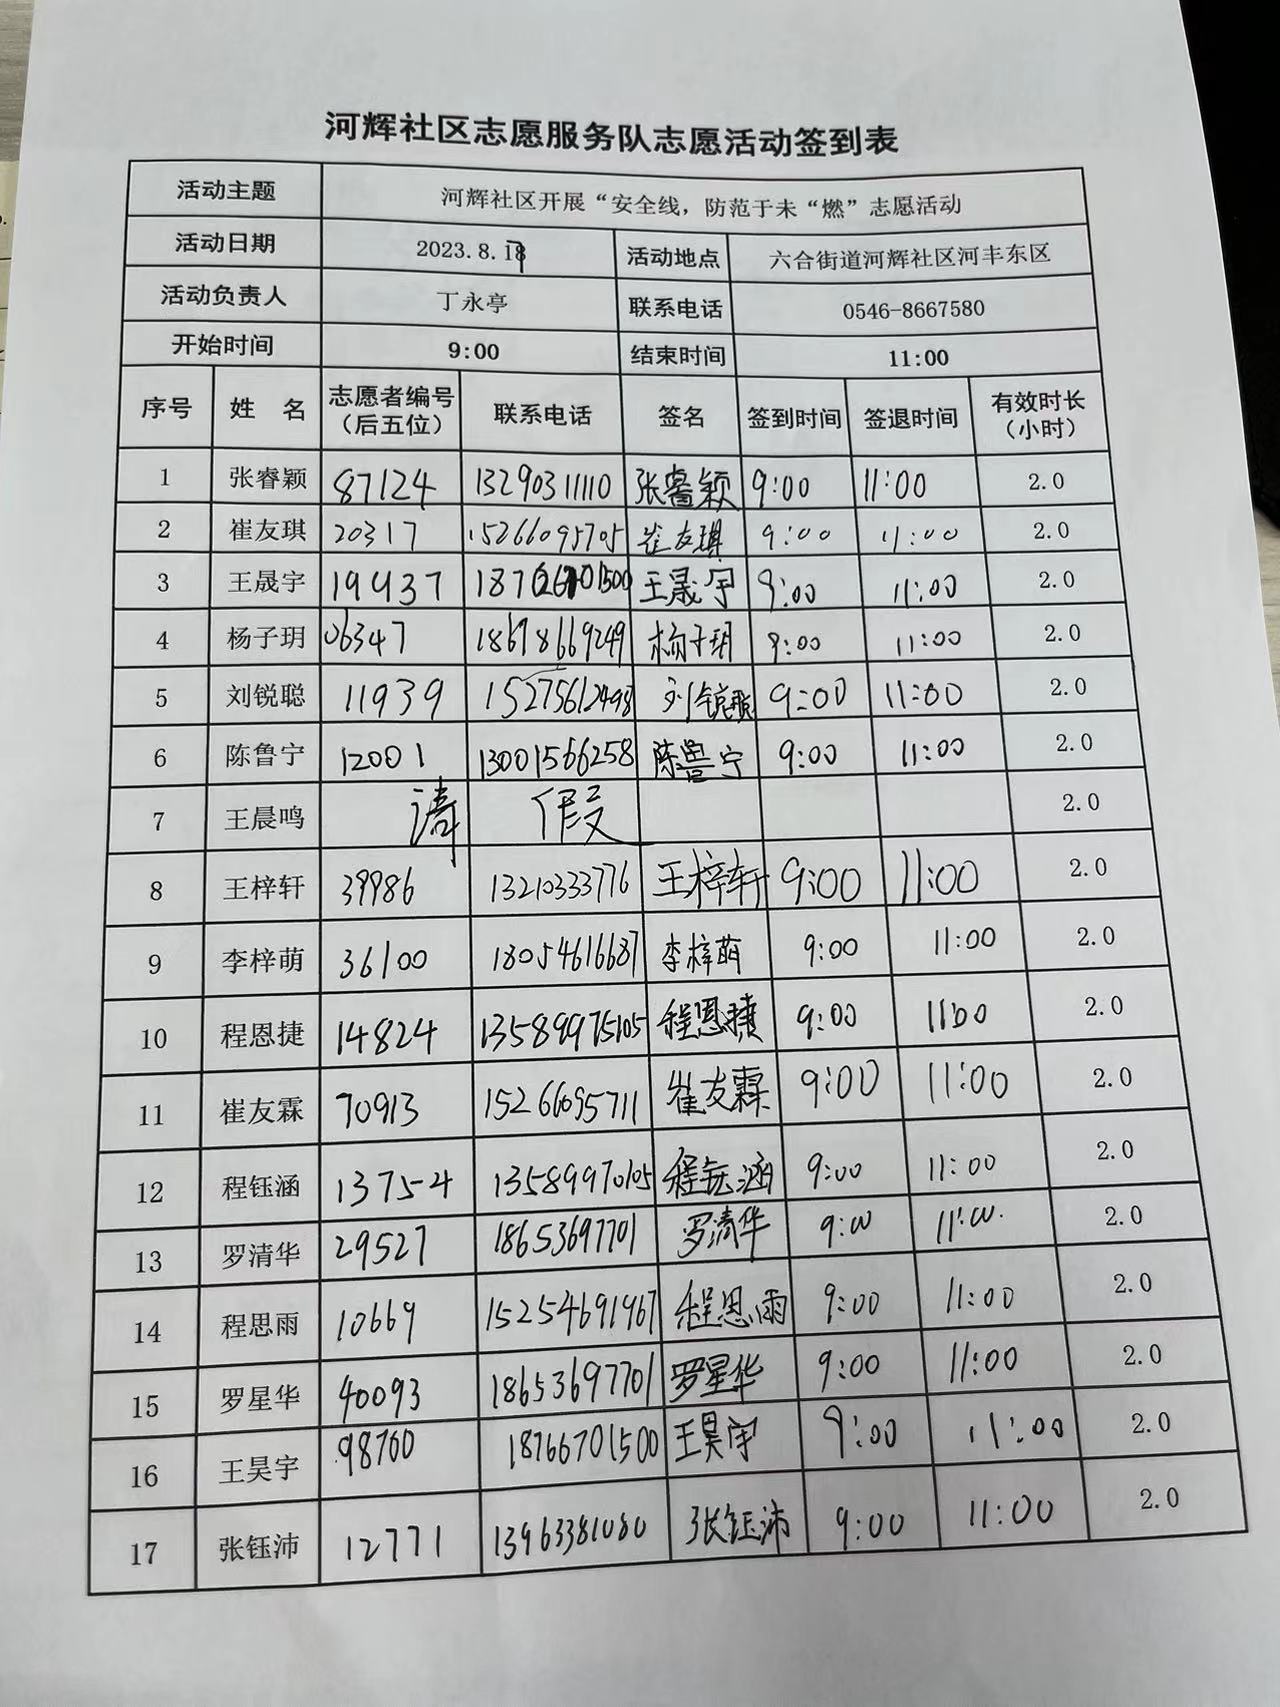 河辉社区志愿服务队志愿活动签到表
活动主题 河辉社区开展“安全线，防范于未“燃”志愿活动
活动日期 2023.8. 活动地点 六合街道河辉社区河丰东区
活动负责人 丁永亭 联系电话 0546-8667580
开始时间 9:00 结束时间 11:00
序号 姓 名 志愿者编号（后五位） 联系电话 签名 签到时间 签退时间 有效时长（小时）
1 张睿颖 87124 13290311110 张睿颖 9:00 11:00 2.0
2 崔友琪 20317 15266095705 崔友琪 9:00 11:00 2.0
3 王晟宇 19437 王晟宇 9:00 11:00 2.0
4 杨子玥 06347 18678669249 杨子玥 9:00 11:00 2.0
5 刘锐聪 11939 15275612498 刘锐聪 9:00 11:00 2.0
6 陈鲁宁 12001 13001566258 陈鲁宁 9:00 11:00 2.0
7 王晨鸣 请 假 2.0
8 王梓轩 39986 13210333776 王梓轩 9:00 11:00 2.0
9 李梓萌 36100 18054616687 李梓萌 9:00 11:00 2.0
10 程恩捷 14824 13589975105 程恩捷 9:00 11:00 2.0
11 崔友霖 70913 15266095711 崔友霖 9:00 11:00 2.0
12 程钰涵 13754 13589970105 程钰涵 9:00 11:00 2.0
13 罗清华 29527 18653697701 罗清华 9:00 11:00. 2.0
14 程思雨 10669 15254691967 程思雨 9:00 11:00 2.0
15 罗星华 40093 18653697701 罗星华 9:00 11:00 2.0
16 王昊宇 98760 18766701500 王昊宇 9:00 11:00 2.0
17 张钰沛 12771 13963381080 张钰沛 9:00 11:00 2.0